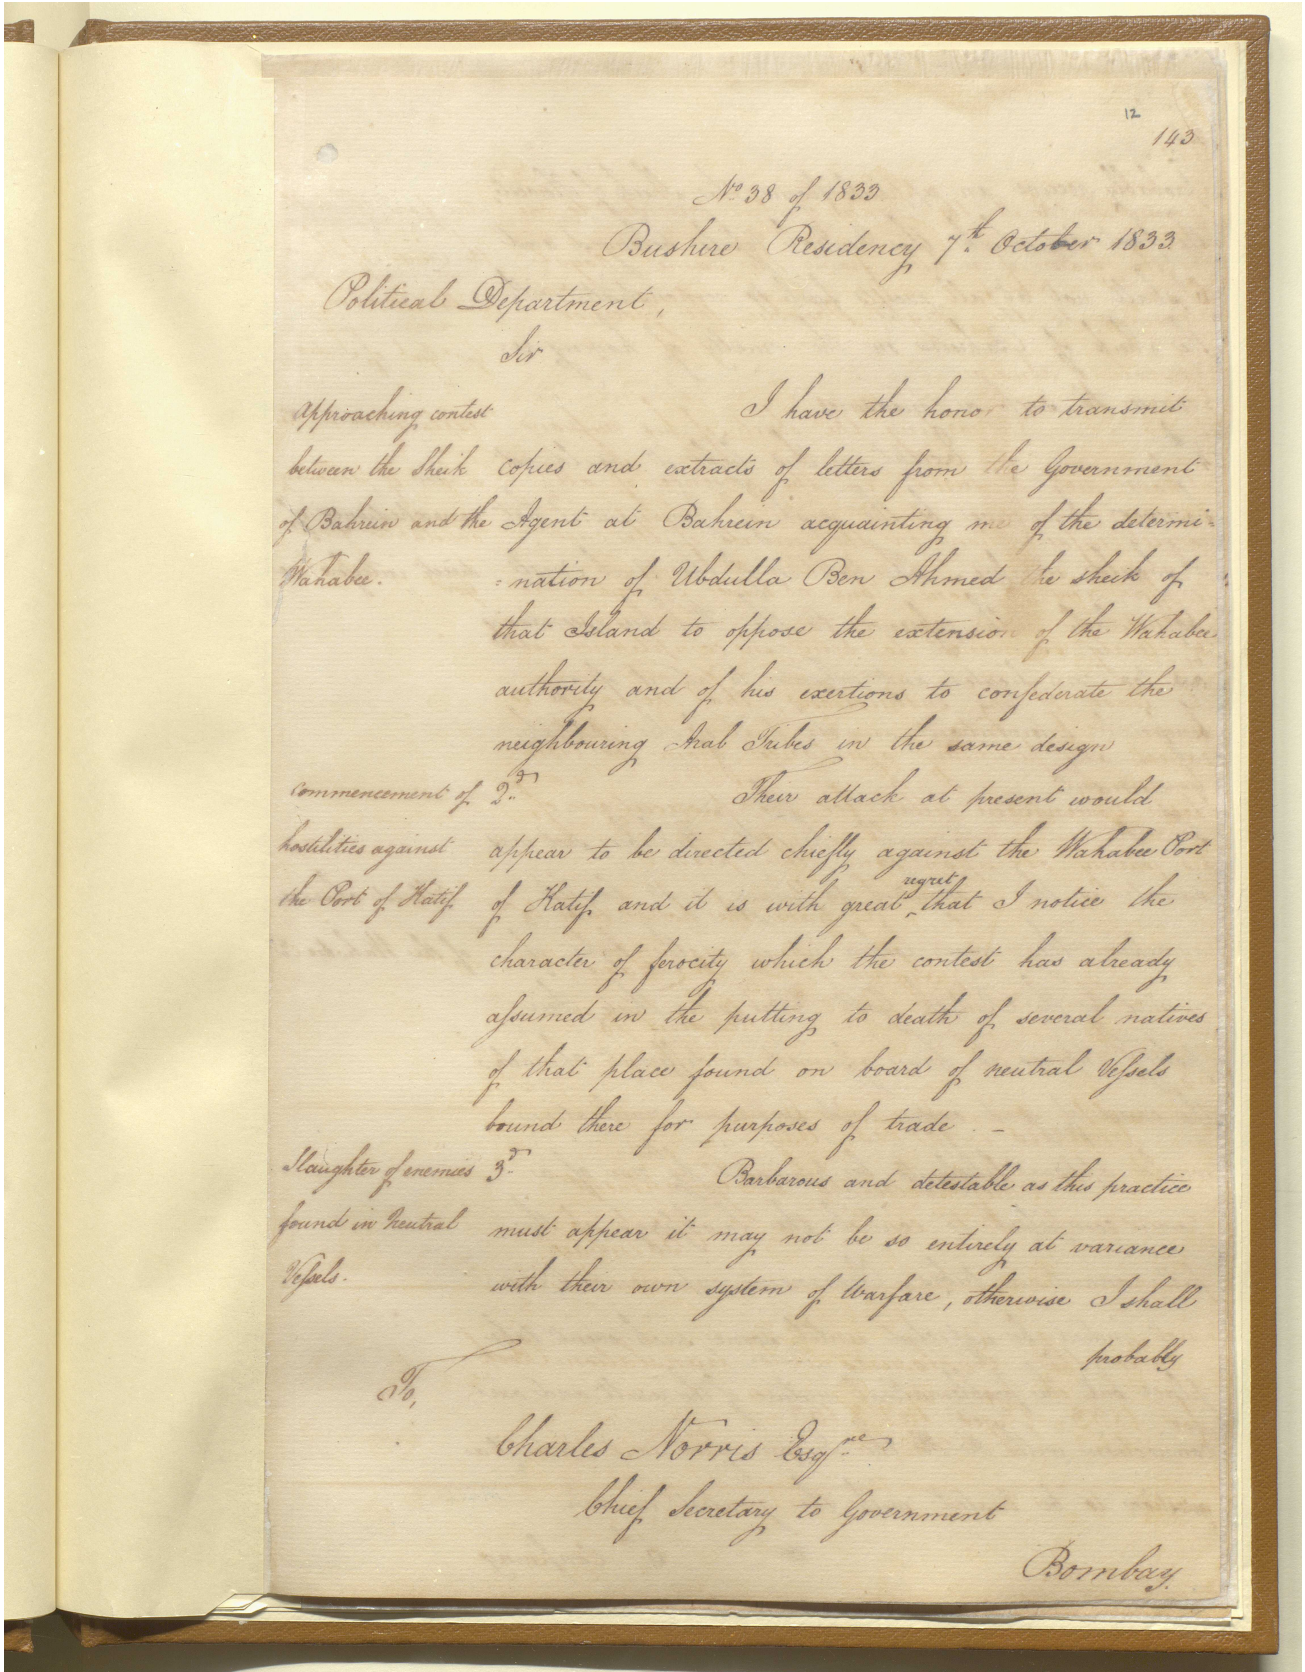 12
143
No 38 of 1833
Bushire Residency 7th October 1833.
Political Department,
Sir
approaching contest
between the Sheik
of Bahrein and the
Wahabee.
I have the honor to transmit
copies and extracts of letters from the Government
Agent at Bahrein acquainting me of the determi=
=nation of Ubdulla Ben Ahmed the sheik of
that Island to oppose the extension of the Wahabee
authority and of his exertions to confederate the
neighbouring Arab Tribes in the same design
commencement of
hostilities against
the Port of Katif
2d Their attack at present would
appear to be directed chiefly against the Wahabee Port
of Katif and it is with great regret that I notice the
character of ferocity which the contest has already
assumed in the putting to death of several natives
of that place found on board of neutral Vessels
bound there for purposes of trade. -
Slaughter of enemies
found in Neutral
Vessels.
3d Barbarous and detestable as this practice
must appear it may not be so entirely at variance
with their own system of Warfare, otherwise I shall
probably
To,
Charles Norris Esqre
Chief Secretary to Government
Bombay.